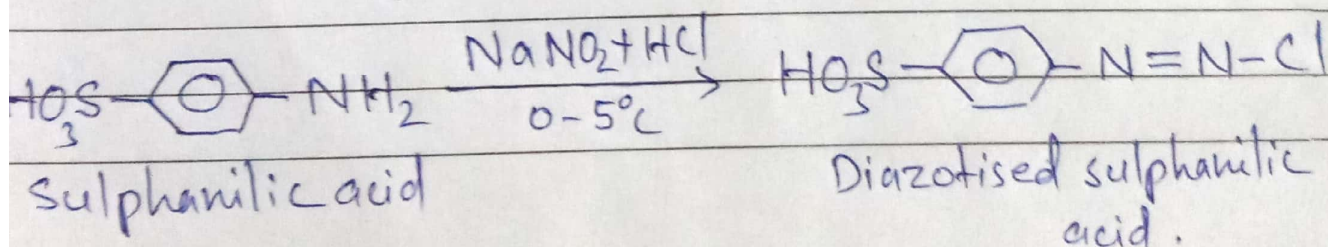 HO3S-⌬-NH2 NaNO2+HCl HO3S-⌬-N=N-Cl
0-5°C
Sulphanilic acid Diazotised sulphanilic
acid.